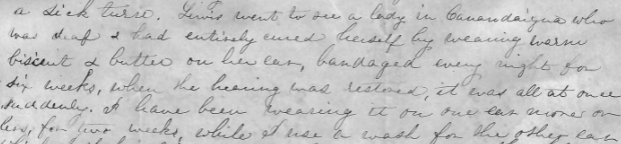 a sick turn. Lewis went to see a lady in Canandaigua who
was deaf & had entirely cured herself by wearing warm
biscent & butter on her ear, bandaged every night for
six weeks, when the hearing was restored, it was all at once
suddenly. I have been wearing it on one ear more or
less, for two weeks, while I use a wash for the other ear